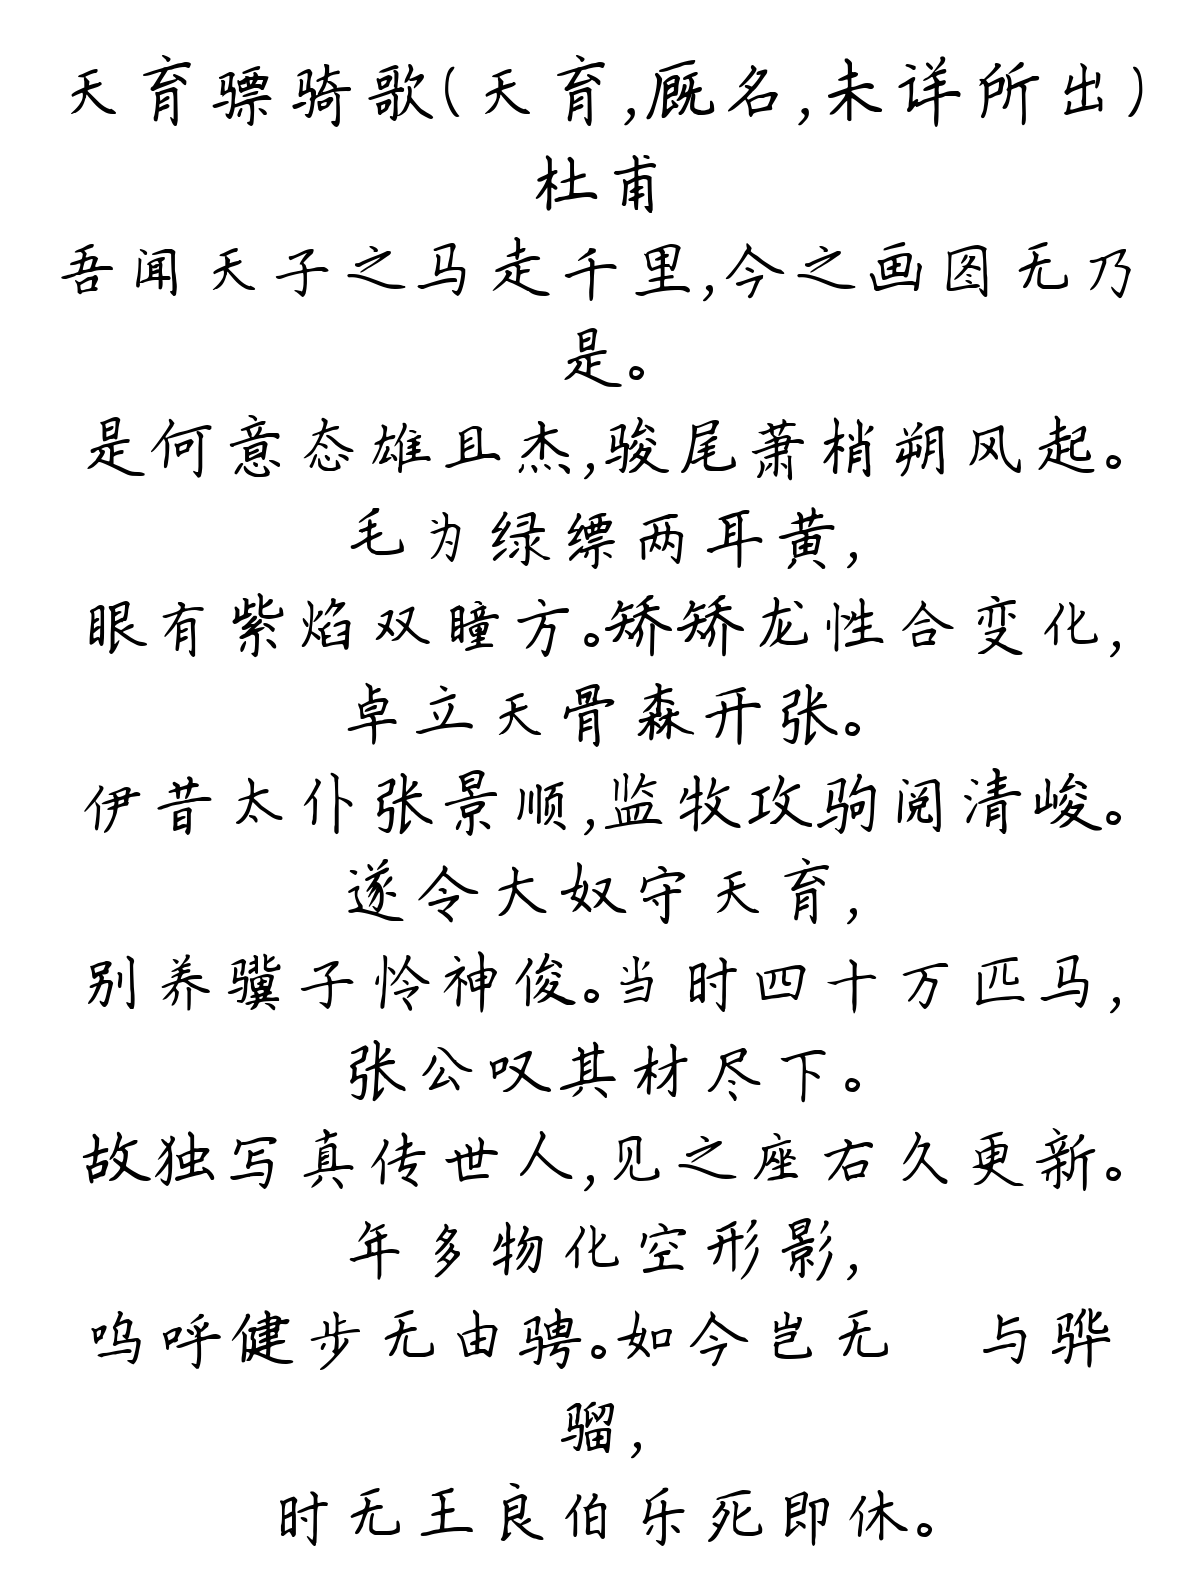 天育骠骑歌(天育,厩名,未详所出)
杜甫
吾闻天子之马走千里,今之画图无乃
是。
是何意态雄且杰,骏尾萧梢朔风起。
毛为绿缥两耳黄,
眼有紫焰双瞳方。矫矫龙性合变化,
卓立天骨森开张。
伊昔太仆张景顺,监牧攻驹阅清峻。
遂令大奴守天育,
别养骥子怜神俊。当时四十万匹马,
张公叹其材尽下。
故独写真传世人,见之座右久更新。
年多物化空形影,
呜呼健步无由骋。如今岂无 与骅
骝,
时无王良伯乐死即休。